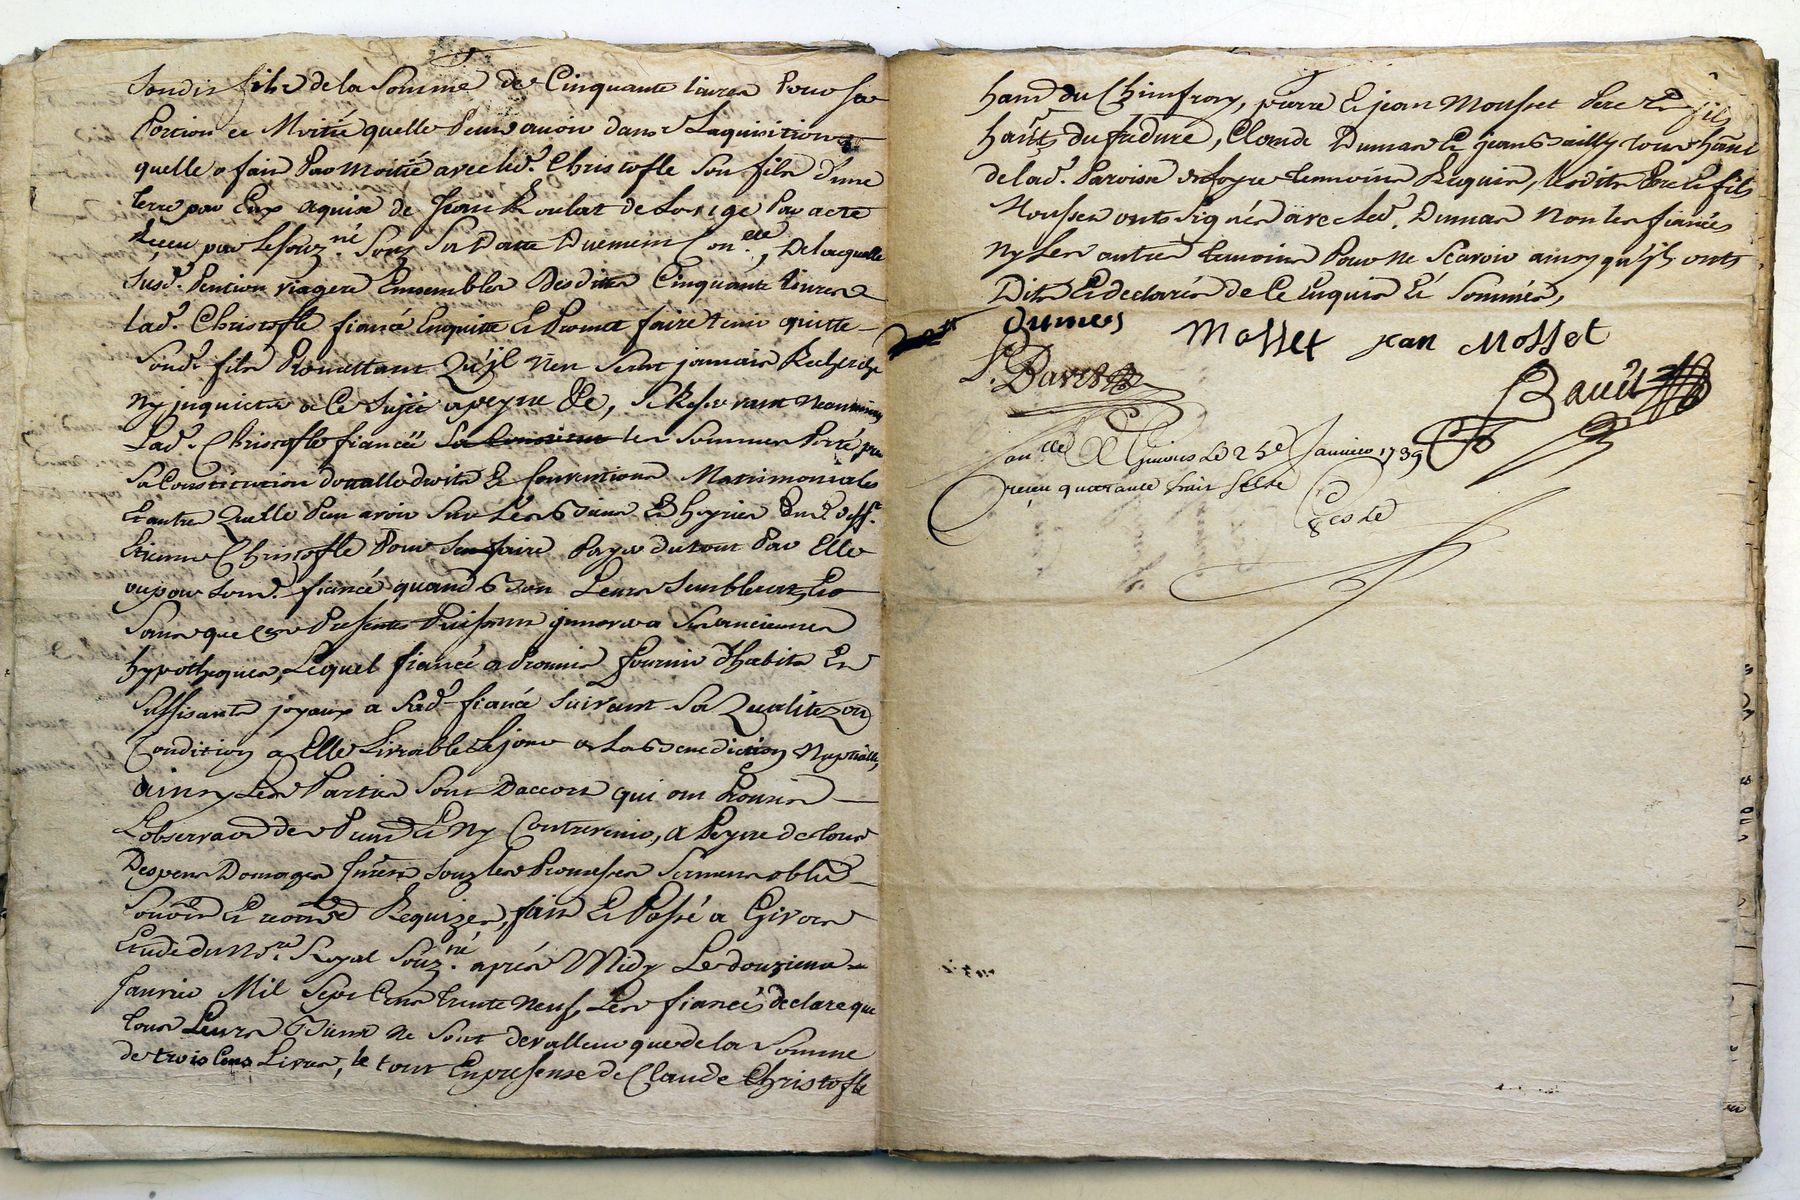 Sondit fils de la Somme de Cinquante livres Pour sa
Portion et Moitié quelle Peut avoir dans Laquisition
quelle a fait Par moitié avec led. Christofle Son fils d'une
terre par Eux aquise de Jean de Par acte
Reçeu par Le souz.né Sous Sa Datte Duement Con.ellé, De laquelle
Susd. Pention viagere Ensembles Desdittes Cinquante Livres
Lad. Christofle fiancé Enquitte Et Promet faire tenir quitte
Sond. fils Promettant Qu'jl n'en Serat jamais Recherché
Ny jnquietté a Ce Sujéé apeyne &c, se Reservant Neanmoins
Lad. Christofle fianceé les Sommes Porté par
Sa Constitution dotalle droits Et Conventions Matrimoniales
Et autres Quelle Peut avoir Sur Les Biens Et hoyries Dud. deff.t
Etienne Christofle Pour Sen faire Payer du tout Par Elle
ou par Sond. fiancé quand Bon Leurs Semblerat, Et
Sans que les Presentes Puissent jnnover a Ses anciennes
hypotheques, Lequel fiancé a Promis fournir d'habits Et
Suffisants joyaux a Sad. fiancé Suivant Sa Qualitez ou
Condition a Elle Livrable Le jour de La Benediction Nuptialle,
ainsy Les Parties Sont Daccort qui ont Promis
L'observation de Point Et Ny Contrevenir, a Peyne de tous
Despens Domages jnterets Souz les Promesses Serments oblig.
Soumons Et renonce Requizes, fait Et Passé a Givors
Etude du No.re Royal Souz.né après Midy Le douzieme
Janvier Mil Sept Cens trente Neuf, Les fiancés declare que
tous Leurs Biens Ne Sont de valleur que de la Somme
de trois Cens Livres, le tout En presense de Claude Christofle
habit du Chimfray, pierre Et jean Mousset Pere Et fils
hab.ts du fridure, Claude Dumas Et jean Bailly tous hab.t
de lad. Paroisse temoins Requis, Lesdits Pere Et fils
Mousset onts Signés avec Led. Dumas Non les fiancés
Ny Les autres temoins Pour Ne Scavoir ainsy qu'jls onts
Dits Et declarés de Ce Enquis Et Sommés,
Dumas Mosset jean Mosset
Bavet
Con.llé A Givors Le 25e Janvier 1739
receu quarante huit sols